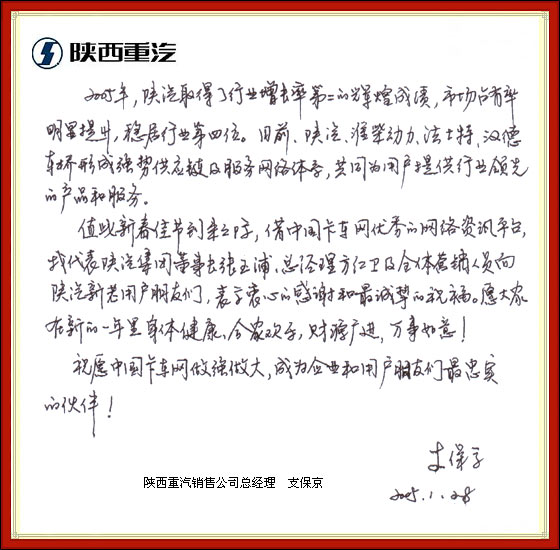 陕西重汽
2005年，陕汽取得了行业增长率第二的辉煌成绩，市场占有率
明显提升，稳居行业第四位。目前、陕汽、潍柴动力、法士特、汉德
车桥形成强势供应链及服务网络体系，共同为用户提供行业领先
的产品和服务。
值此新春佳节到来之际，借中国卡车网优秀的网络资讯平台，
我代表陕汽集团董事长张玉浦、总经理方红卫及全体营销人员向
陕汽新老用户朋友们，表示衷心的感谢和最诚挚的祝福。愿大家
在新的一年里身体健康，全家欢乐，财源广进，万事如意！
祝愿中国卡车网做强做大，成为企业和用户朋友们最忠实
的伙伴！
支保京
陕西重汽销售公司总经理 支保京